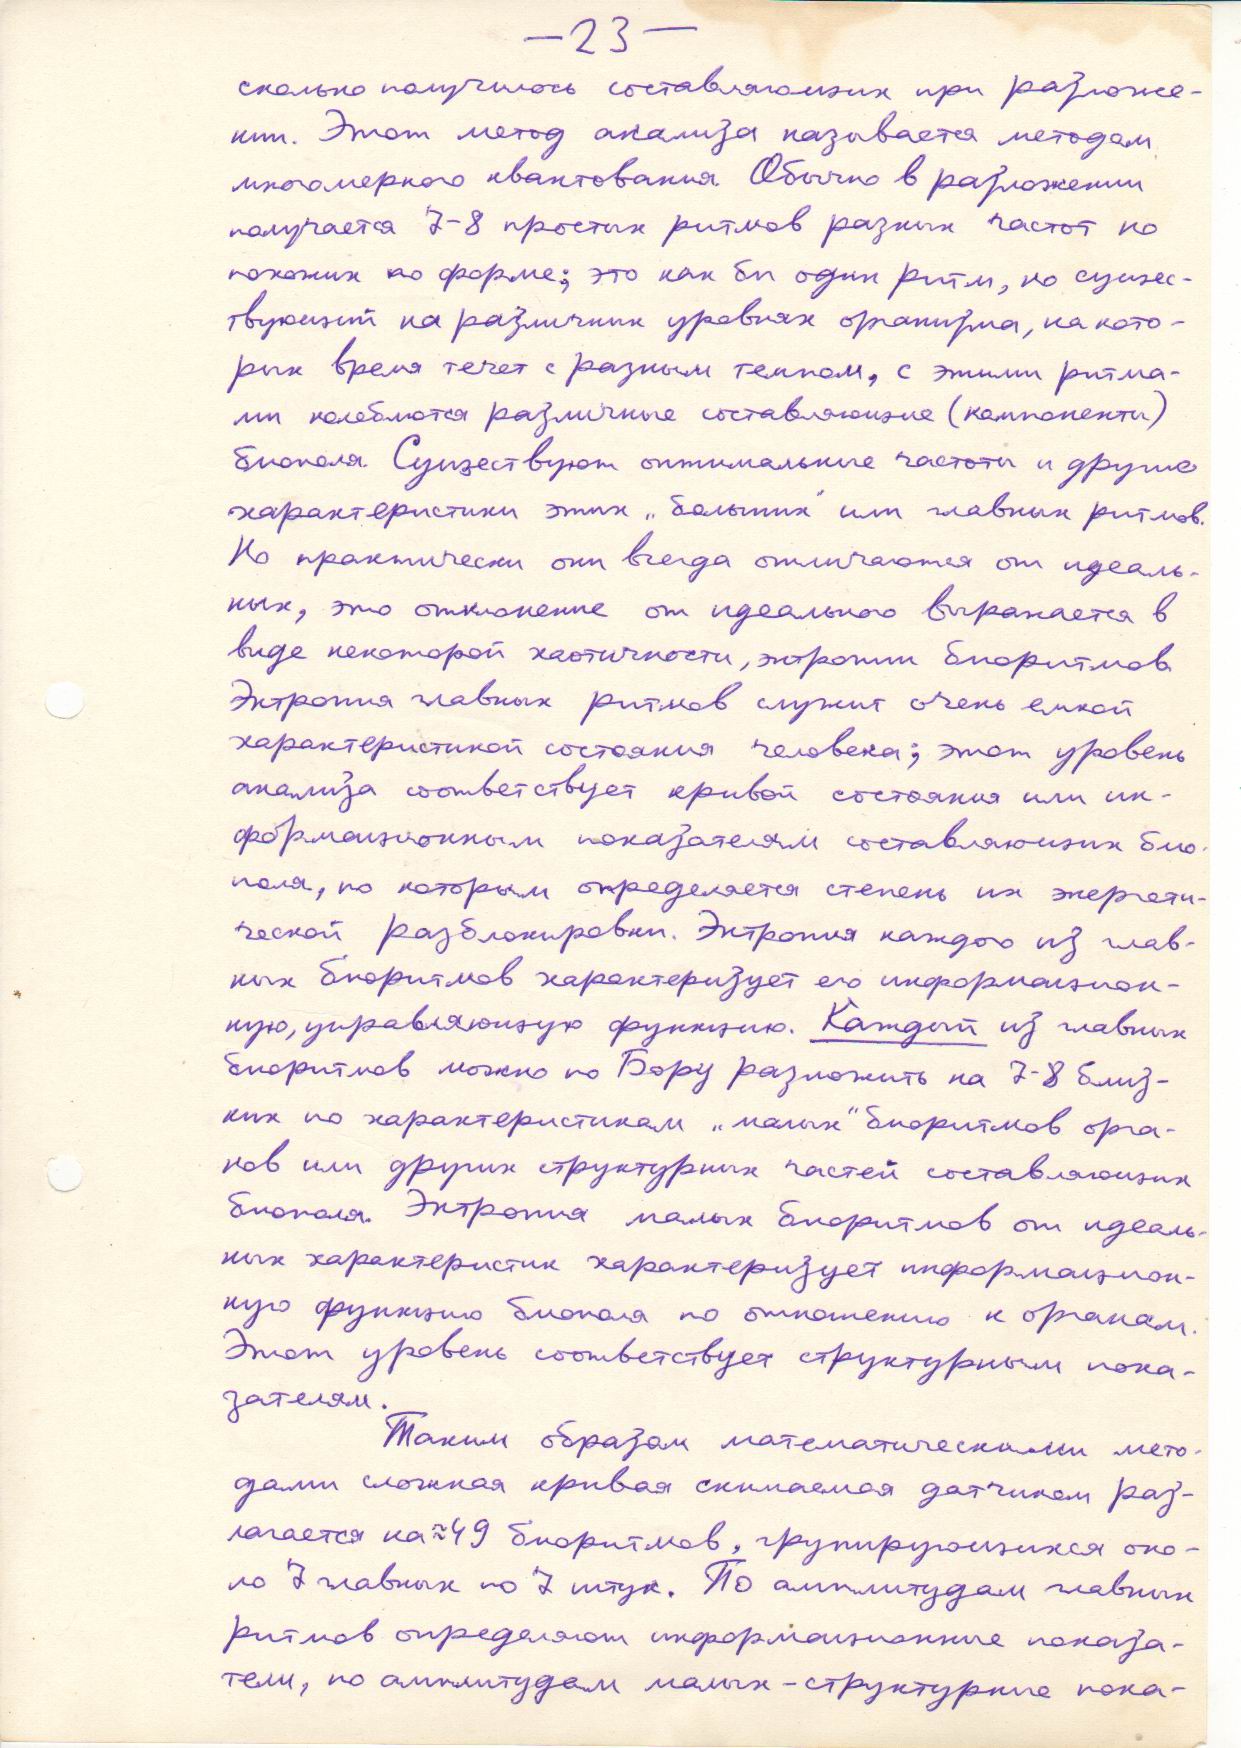 —23—
сколько получилось составляющих при разложе-
нии. Этот метод анализа называется методом
многомерного квантования. Обычно в разложении
получается 7-8 простых ритмов разных частот но
похожих по форме; это как бы один ритм, но сущес-
твующий на различных уровнях организма, на кото-
рых время течет с разным темпом, с этими ритма-
ми колеблются различные составляющие (компоненты)
биополя. Существуют оптимальные частоты и другие
характеристики этих „больших" или главных ритмов.
Но практически они всегда отличаются от идеаль-
ных, это отклонение от идеального выражается в
виде некоторой хаотичности, энтропии биоритмов.
Энтропия главных ритмов служит очень емкой
характеристикой состояния человека; этот уровень
анализа соответствует кривой состояния или ин-
формационным показателям составляющих био-
поля, по которым определяется степень их энергети-
ческой разблокировки. Энтропия каждого из глав-
ных биоритмов характеризует его информацион-
ную, управляющую функцию. Каждый из главных
биоритмов можно по Бору разложить на 7-8 близ-
ких по характеристикам „малых" биоритмов орга-
нов или других структурных частей составляющих
биополя. Энтропия малых биоритмов от идеаль-
ных характеристик характеризует информацион-
ную функцию биополя по отношению к органам.
Этот уровень соответствует структурным пока-
зателям.
Таким образом математическими мето-
дами сложная кривая снимаемая датчиком раз-
лагается на ≈49 биоритмов, групирующихся око-
ло 7 главных по 7 штук. По амплитудам главных
ритмов определяют информационные показа-
тели, по амплитудам малых - структурные пока-